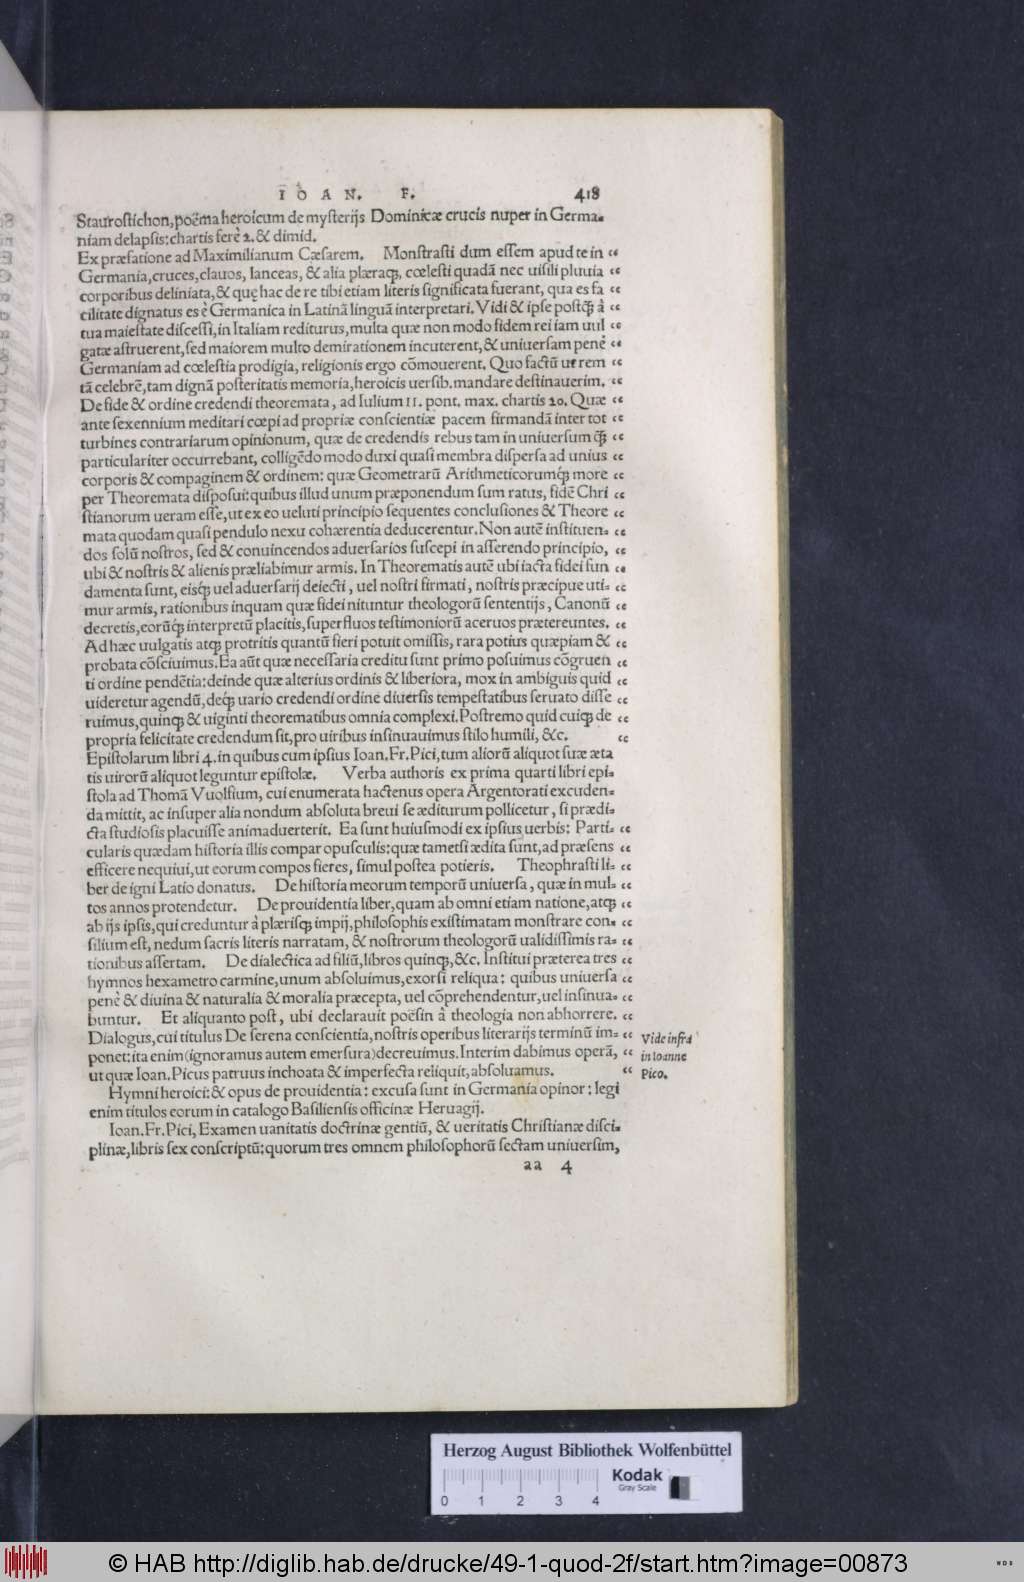 IOAN. F. 418
Staurostichon, poëma heroicum de mysterijs Dominicæ crucis nuper in Germa-
niam delapsis: chartis ferè 2. & dimid.
Ex præfatione ad Maximilianum Cæsarem. Monstrasti dum essem apud te in “
Germania, cruces, clauos, lanceas, & alia plæraq;, cœlesti quadã nec uisili pluuia “
corporibus deliniata, & quę hac de re tibi etiam literis significata fuerant, qua es fa “
cilitate dignatus es è Germanica in Latinã linguã interpretari. Vidi & ipse postq̃ à “
tua maiestate discessi, in Italiam rediturus, multa quæ non modo fidem rei iam uul “
gatæ astruerent, sed maiorem multo demirationem incuterent, & uniuersam penè “
Germaniam ad cœlestia prodigia, religionis ergo cõmouerent. Quo factũ ut rem “
tã celebrẽ, tam dignã posteritatis memoria, heroicis uersib. mandare destinauerim. “
De fide & ordine credendi theoremata, ad Iulium II. pont. max. chartis 20. Quæ “
ante sexennium meditari cœpi ad propriæ conscientiæ pacem firmandã inter tot “
turbines contrariarum opinionum, quæ de credendis rebus tam in uniuersum q̃ “
particulariter occurrebant, colligẽdo modo duxi quasi membra dispersa ad unius “
corporis & compaginem & ordinem: quæ Geometrarũ Arithmeticorumq; more “
per Theoremata disposui: quibus illud unum præponendum sum ratus, fidẽ Chri “
stianorum ueram esse, ut ex eo ueluti principio sequentes conclusiones & Theore “
mata quodam quasi pendulo nexu cohærentia deducerentur. Non autẽ instituen- “
dos solũ nostros, sed & conuincendos aduersarios suscepi in asserendo principio, “
ubi & nostris & alienis præliabimur armis. In Theorematis autẽ ubi iacta fidei fun “
damenta sunt, eisq; uel aduersarij deiecti, uel nostri firmati, nostris præcipue uti- “
mur armis, rationibus inquam quæ fidei nituntur theologorũ sententijs, Canonũ “
decretis, eorũq; interpretũ placitis, superfluos testimoniorũ aceruos prætereuntes. “
Ad hæc uulgatis atq; protritis quantũ fieri potuit omissis, rara potius quæpiam & “
probata cõsciuimus. Ea aũt quæ necessaria creditu sunt primo posuimus cõgruen “
ti ordine pendẽtia: deinde quæ alterius ordinis & liberiora, mox in ambiguis quid “
uideretur agendũ, deq; uario credendi ordine diuersis tempestatibus seruato disse “
ruimus, quinq; & uiginti theorematibus omnia complexi. Postremo quid cuiq; de “
propria felicitate credendum sit, pro uiribus insinuauimus stilo humili, &c. “
Epistolarum libri 4. in quibus cum ipsius Ioan. Fr. Pici, tum aliorũ aliquot suæ æta
tis uirorũ aliquot leguntur epistolæ. Verba authoris ex prima quarti libri epi-
stola ad Thomã Vuolfium, cui enumerata hactenus opera Argentorati excuden-
da mittit, ac insuper alia nondum absoluta breui se æditurum pollicetur, si prædi-
cta studiosis placuisse animaduerterit. Ea sunt huiusmodi ex ipsius uerbis: Parti- “
cularis quædam historia illis compar opusculis: quæ tametsi ædita sunt, ad præsens “
efficere nequiui, ut eorum compos fieres, simul postea potieris. Theophrasti li- “
ber de igni Latio donatus. De historia meorum temporũ uniuersa, quæ in mul- “
tos annos protendetur. De prouidentia liber, quam ab omni etiam natione, atq; “
ab ijs ipsis, qui creduntur à plærisq; impij, philosophis existimatam monstrare con- “
silium est, nedum sacris literis narratam, & nostrorum theologorũ ualidissimis ra- “
tionibus assertam. De dialectica ad filiũ, libros quinq;, &c. Institui præterea tres “
hymnos hexametro carmine, unum absoluimus, exorsi reliqua: quibus uniuersa “
penè & diuina & naturalia & moralia præcepta, uel cõprehendentur, uel insinua- “
buntur. Et aliquanto post, ubi declarauit poësin à theologia non abhorrere. “
Dialogus, cui titulus De serena conscientia, nostris operibus literarijs terminũ im- “ Vide infra
ponet: ita enim (ignoramus autem emersura) decreuimus. Interim dabimus operã, “ in Ioanne
ut quæ Ioan. Picus patruus inchoata & imperfecta reliquit, absoluamus. “ Pico.
Hymni heroici: & opus de prouidentia: excusa sunt in Germania opinor: legi
enim titulos eorum in catalogo Basiliensis officinæ Heruagij.
Ioan. Fr. Pici, Examen uanitatis doctrinæ gentiũ, & ueritatis Christianæ disci-
plinæ, libris sex conscriptũ: quorum tres omnem philosophorũ sectam uniuersim,
aa 4
Herzog August Bibliothek Wolfenbüttel
Kodak
Gray Scale
0 1 2 3 4
© HAB http://diglib.hab.de/drucke/49-1-quod-2f/start.htm?image=00873